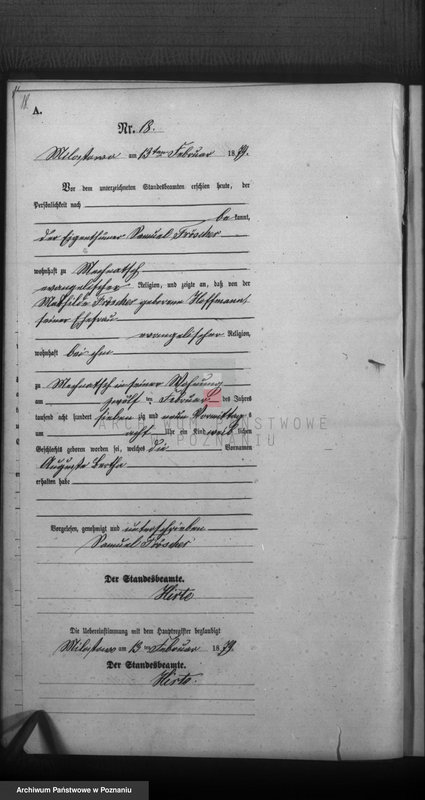 18.
A.
Nr. 18.
Miloſtowo am 13ten Februar 1879.
Vor dem unterzeichneten Standesbeamten erſchien heute, der
Perſönlichkeit nach
bekannt,
der Eigenthümer Samuel Fröscher
wohnhaft zu Mechnatsch
evangelischer Religion, und zeigte an, daß von der
Mathilde Fröscher geborene Hoffmann,
seiner Ehefrau
evangelischer Religion,
wohnhaft bei ihm
zu Mechnatsch in seiner Wohnung
am zwölften Februar des Jahres
tauſend acht hundert siebenzig und neun Vormittags
um acht Uhr ein Kind weiblichen
Geſchlechts geboren worden ſei, welches die Vornamen
Auguste Bertha
erhalten habe
Vorgeleſen, genehmigt und unterschrieben
Samuel Fröscher
Der Standesbeamte.
Hirte
Die Uebereinſtimmung mit dem Hauptregiſter beglaubigt
Miloſtowo am 13ten Februar 1879.
Der Standesbeamte.
Hirte.
ARCHIWUM PAŃSTWOWE
W POZNANIU
Archiwum Państwowe w Poznaniu